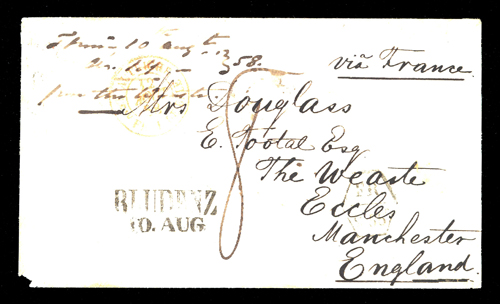 10 Aug
58.
via France
Mrs Douglass
E. Tootal Esq
The Weaste
Eccles
Manchester
England.
8
BLUDENZ
10. AUG